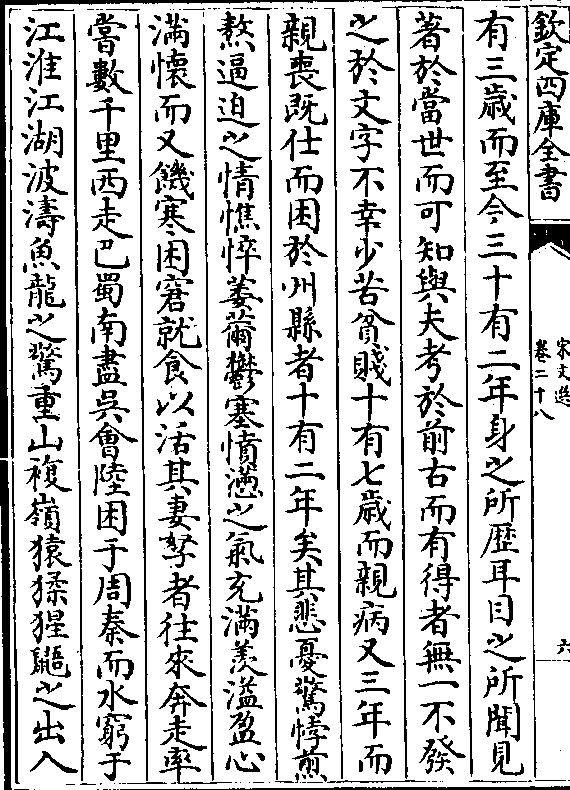 欽定四庫全書
宋文選
卷二十八
六
有三歲而至今三十有二年身之所歷耳目之所聞見
著於當世而可知與夫考於前古而有得者無一不發
之於文字不幸少苦貧賤十有七歲而親病又三年而
親喪既仕而困於州縣者十有二年矣其悲憂驚悸煎
熬逼迫之情憔悴萎薾鬱塞憤懣之氣充滿羨溢盈心
滿懷而又饑寒困窘就食以活其妻孥者往來奔走率
嘗數千里西走巴蜀南盡吳會陸困于周秦而水窮于
江淮江湖波濤魚龍之驚重山複嶺猿猱猩鼯之出入